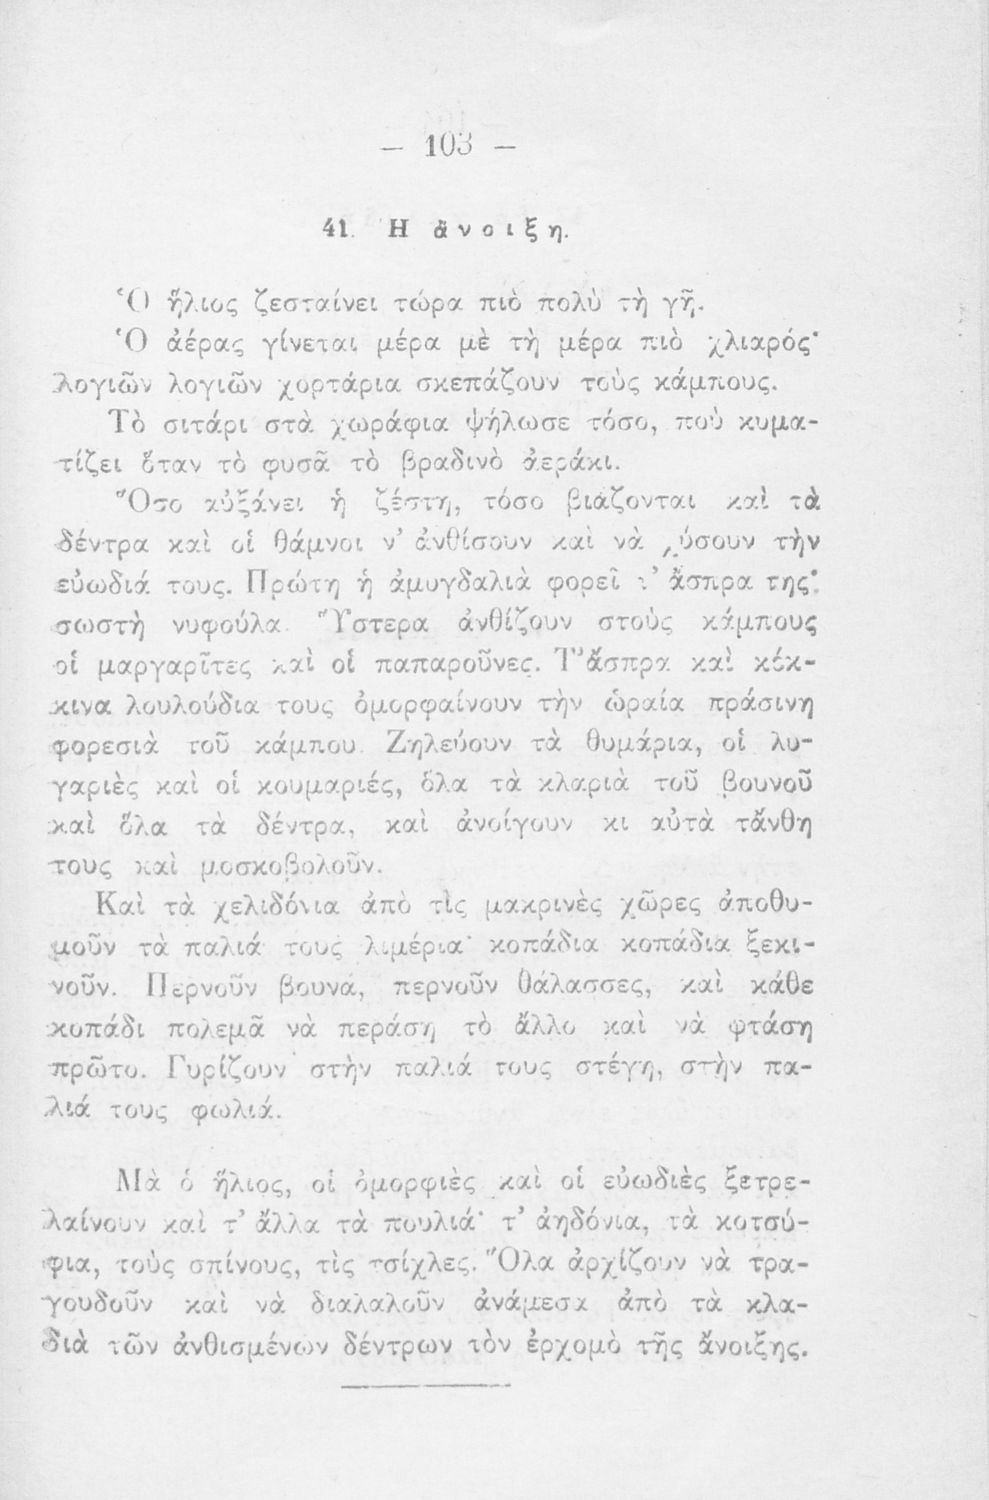 — 103 —
41. Ἡ ἄνοιξη.
Ὁ ἥλιος ζεσταίνει τώρα πιὸ πολὺ τὴ γῆ.
Ὁ ἀέρας γίνεται μέρα μὲ τὴ μέρα πιὸ χλιαρός·
λογιῶν λογιῶν χορτάρια σκεπάζουν τοὺς κάμπους.
Τὸ σιτάρι στὰ χωράφια ψήλωσε τόσο, ποὺ κυμα-
τίζει ὅταν τὸ φυσᾶ τὸ βραδινὸ ἀεράκι.
Ὅσο αὐξάνει ἡ ζέστη, τόσο βιάζονται καὶ τὰ
δέντρα καὶ οἱ θάμνοι ν’ ἀνθίσουν καὶ νὰ χύσουν τὴν
εὐωδιά τους. Πρώτη ἡ ἀμυγδαλιὰ φορεῖ τ’ ἄσπρα της·
σωστὴ νυφούλα. Ὕστερα ἀνθίζουν στοὺς κάμπους
οἱ μαργαρῖτες καὶ οἱ παπαροῦνες. Τ’ ἄσπρα καὶ κόκ-
κινα λουλούδια τους ὀμορφαίνουν τὴν ὡραία πράσινη
φορεσιὰ τοῦ κάμπου. Ζηλεύουν τὰ θυμάρια, οἱ λυ-
γαριὲς καὶ οἱ κουμαριές, ὅλα τὰ κλαριὰ τοῦ βουνοῦ
καὶ ὅλα τὰ δέντρα, καὶ ἀνοίγουν κι αὐτὰ τἄνθη
τους καὶ μοσκοβολοῦν.
Καὶ τὰ χελιδόνια ἀπὸ τὶς μακρινὲς χῶρες ἀποθυ-
μοῦν τὰ παλιά τους λιμέρια· κοπάδια κοπάδια ξεκι-
νοῦν. Περνοῦν βουνά, περνοῦν θάλασσες, καὶ κάθε
κοπάδι πολεμᾶ νὰ περάσῃ τὸ ἄλλο καὶ νὰ φτάσῃ
πρῶτο. Γυρίζουν στὴν παλιά τους στέγη, στὴν πα-
λιά τους φωλιά.
Μὰ ὁ ἥλιος, οἱ ὀμορφιὲς καὶ οἱ εὐωδιὲς ξετρε-
λαίνουν καὶ τ’ ἄλλα τὰ πουλιά· τ’ ἀηδόνια, τὰ κοτσύ-
φια, τοὺς σπίνους, τὶς τσίχλες. Ὅλα ἀρχίζουν νὰ τρα-
γουδοῦν καὶ νὰ διαλαλοῦν ἀνάμεσα ἀπὸ τὰ κλα-
διὰ τῶν ἀνθισμένων δέντρων τὸν ἐρχομὸ τῆς ἄνοιξης.